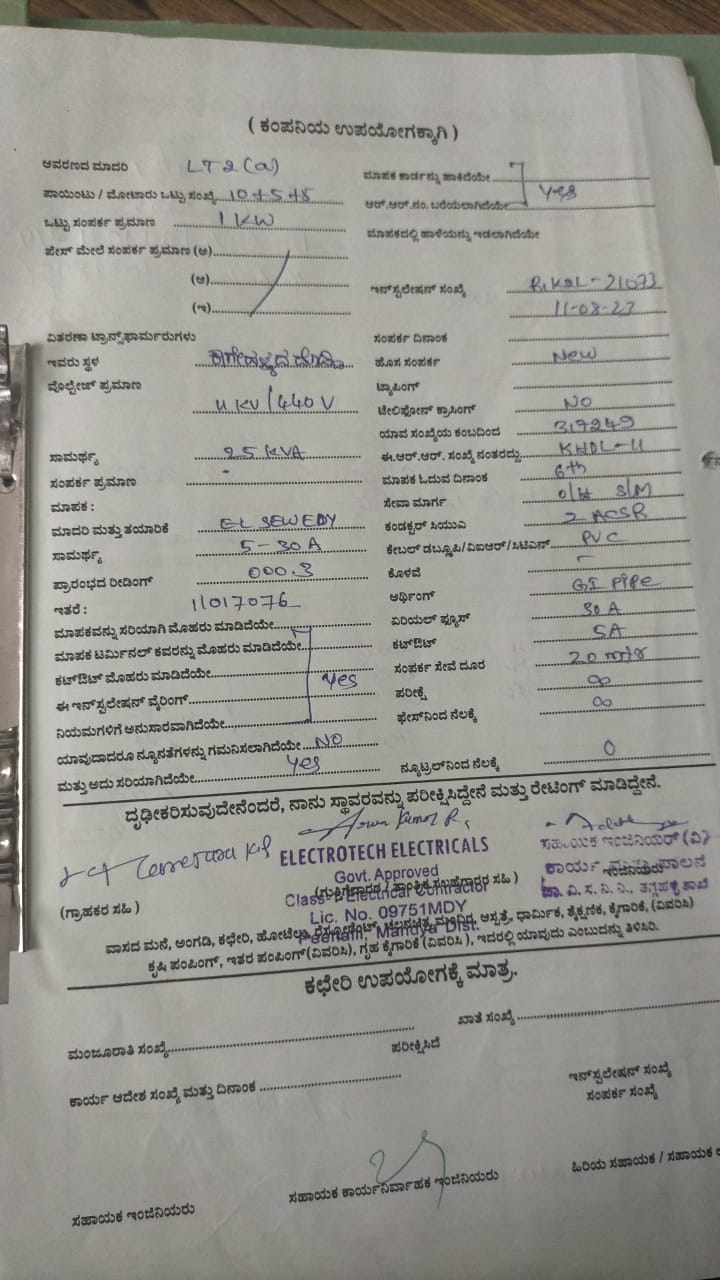 ( ಕಂಪನಿಯ ಉಪಯೋಗಕ್ಕಾಗಿ )
ಆವರಣದ ಮಾದರಿ LT2(a)
ಪಾಯಿಂಟು / ಮೋಟಾರು ಒಟ್ಟು ಸಂಖ್ಯೆ 10+5+5
ಒಟ್ಟು ಸಂಪರ್ಕ ಪ್ರಮಾಣ 1 KW
ಫೇಸ್ ಮೇಲೆ ಸಂಪರ್ಕ ಪ್ರಮಾಣ (ಅ)
(ಆ)
(ಇ)
ವಿತರಣಾ ಟ್ರಾನ್ಸ್‌ಫಾರ್ಮರುಗಳು
ಇವರು ಸ್ಥಳ
ವೊಲ್ಟೇಜ್ ಪ್ರಮಾಣ
11 KV/440 V
ಸಾಮರ್ಥ್ಯ 25 KVA
ಸಂಪರ್ಕ ಪ್ರಮಾಣ -
ಮಾಪಕ :
ಮಾದರಿ ಮತ್ತು ತಯಾರಿಕೆ EL SEWEDY
ಸಾಮರ್ಥ್ಯ 5-30A
ಪ್ರಾರಂಭದ ರೀಡಿಂಗ್ 000.3
ಇತರೆ : 11017076
ಮಾಪಕವನ್ನು ಸರಿಯಾಗಿ ಮೊಹರು ಮಾಡಿದೆಯೇ
ಮಾಪಕ ಟರ್ಮಿನಲ್ ಕವರನ್ನು ಮೊಹರು ಮಾಡಿದೆಯೇ
ಕಟ್‌ಔಟ್ ಮೊಹರು ಮಾಡಿದೆಯೇ Yes
ಈ ಇನ್‌ಸ್ಟಲೇಷನ್ ವೈರಿಂಗ್
ನಿಯಮಗಳಿಗೆ ಅನುಸಾರವಾಗಿದೆಯೇ
ಯಾವುದಾದರೂ ನ್ಯೂನತೆಗಳನ್ನು ಗಮನಿಸಲಾಗಿದೆಯೇ NO
ಮತ್ತು ಅದು ಸರಿಯಾಗಿದೆಯೇ Yes
ಮಾಪಕ ಕಾರ್ಡನ್ನು ಹಾಕಿದೆಯೇ
Yes
ಆರ್.ಆರ್.ನಂ. ಬರೆಯಲಾಗಿದೆಯೇ
ಮಾಪಕದಲ್ಲಿ ಹಾಳೆಯನ್ನು ಇಡಲಾಗಿದೆಯೇ
ಇನ್‌ಸ್ಟಲೇಷನ್ ಸಂಖ್ಯೆ
11-08-23
ಸಂಪರ್ಕ ದಿನಾಂಕ
ಹೊಸ ಸಂಪರ್ಕ New
ಟ್ಯಾಪಿಂಗ್
ಟೆಲಿಫೋನ್ ಕ್ರಾಸಿಂಗ್ NO
ಯಾವ ಸಂಖ್ಯೆಯ ಕಂಬದಿಂದ 317249
ಈ.ಆರ್.ಆರ್. ಸಂಖ್ಯೆ ನಂತರದ್ದು KHDL-11
ಮಾಪಕ ಓದುವ ದಿನಾಂಕ 6th
ಸೇವಾ ಮಾರ್ಗ O/H S/M
ಕಂಡಕ್ಟರ್ ಸಿಯುಎ 2 ACSR
ಕೇಬಲ್ ಡಬ್ಲ್ಯೂಪಿ/ವಿಐಆರ್/ಸಿಟಿಎಸ್ PVC
ಕೊಳವೆ -
ಅರ್ಥಿಂಗ್ GI Pipe
ಏರಿಯಲ್ ಫ್ಯೂಸ್ 30 A
ಕಟ್‌ಔಟ್ 5A
ಸಂಪರ್ಕ ಸೇವೆ ದೂರ 20 mtr
ಪರೀಕ್ಷೆ ∞
ಫೇಸ್‌ನಿಂದ ನೆಲಕ್ಕೆ ∞
ನ್ಯೂಟ್ರಲ್‌ನಿಂದ ನೆಲಕ್ಕೆ 0
ದೃಢೀಕರಿಸುವುದೇನೆಂದರೆ, ನಾನು ಸ್ಥಾವರವನ್ನು ಪರೀಕ್ಷಿಸಿದ್ದೇನೆ ಮತ್ತು ರೇಟಿಂಗ್ ಮಾಡಿದ್ದೇನೆ.
Arun Kumar R,
ELECTROTECH ELECTRICALS
Govt. Approved
Class-I Electrical Contractor
Lic. No. 09751MDY
Mandya Dist.
ಸಹಾಯಕ ಇಂಜಿನಿಯರ್ (ವಿ)
(ಗ್ರಾಹಕರ ಸಹಿ )
ವಾಸದ ಮನೆ, ಅಂಗಡಿ, ಕಛೇರಿ, ಹೋಟೆಲು, ರೆಸ್ಟೋರೆಂಟ್, ಚಲನಚಿತ್ರ ಮಂದಿರ, ಆಸ್ಪತ್ರೆ, ಧಾರ್ಮಿಕ, ಶೈಕ್ಷಣಿಕ, ಕೈಗಾರಿಕೆ, (ವಿವರಿಸಿ)
ಕೃಷಿ ಪಂಪಿಂಗ್, ಇತರ ಪಂಪಿಂಗ್(ವಿವರಿಸಿ), ಗೃಹ ಕೈಗಾರಿಕೆ (ವಿವರಿಸಿ ), ಇದರಲ್ಲಿ ಯಾವುದು ಎಂಬುದನ್ನು ತಿಳಿಸಿರಿ.
ಕಛೇರಿ ಉಪಯೋಗಕ್ಕೆ ಮಾತ್ರ.
ಮಂಜೂರಾತಿ ಸಂಖ್ಯೆ
ಖಾತೆ ಸಂಖ್ಯೆ
ಪರೀಕ್ಷಿಸಿದೆ
ಕಾರ್ಯ ಆದೇಶ ಸಂಖ್ಯೆ ಮತ್ತು ದಿನಾಂಕ
ಇನ್‌ಸ್ಟಲೇಷನ್ ಸಂಖ್ಯೆ
ಸಂಪರ್ಕ ಸಂಖ್ಯೆ
ಸಹಾಯಕ ಇಂಜಿನಿಯರು
ಸಹಾಯಕ ಕಾರ್ಯನಿರ್ವಾಹಕ ಇಂಜಿನಿಯರು
ಹಿರಿಯ ಸಹಾಯಕ / ಸಹಾಯಕ